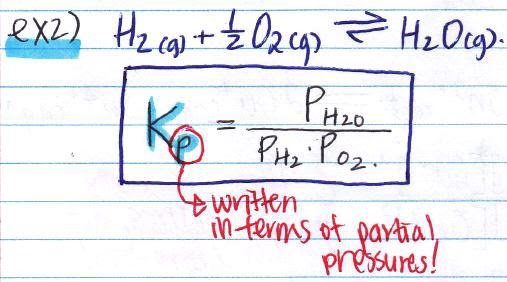 ex2) H₂(g) + ½O₂(g) ⇌ H₂O(g).
Kp = P H₂O / P H₂ · P O₂.
written
in terms of partial
pressures!